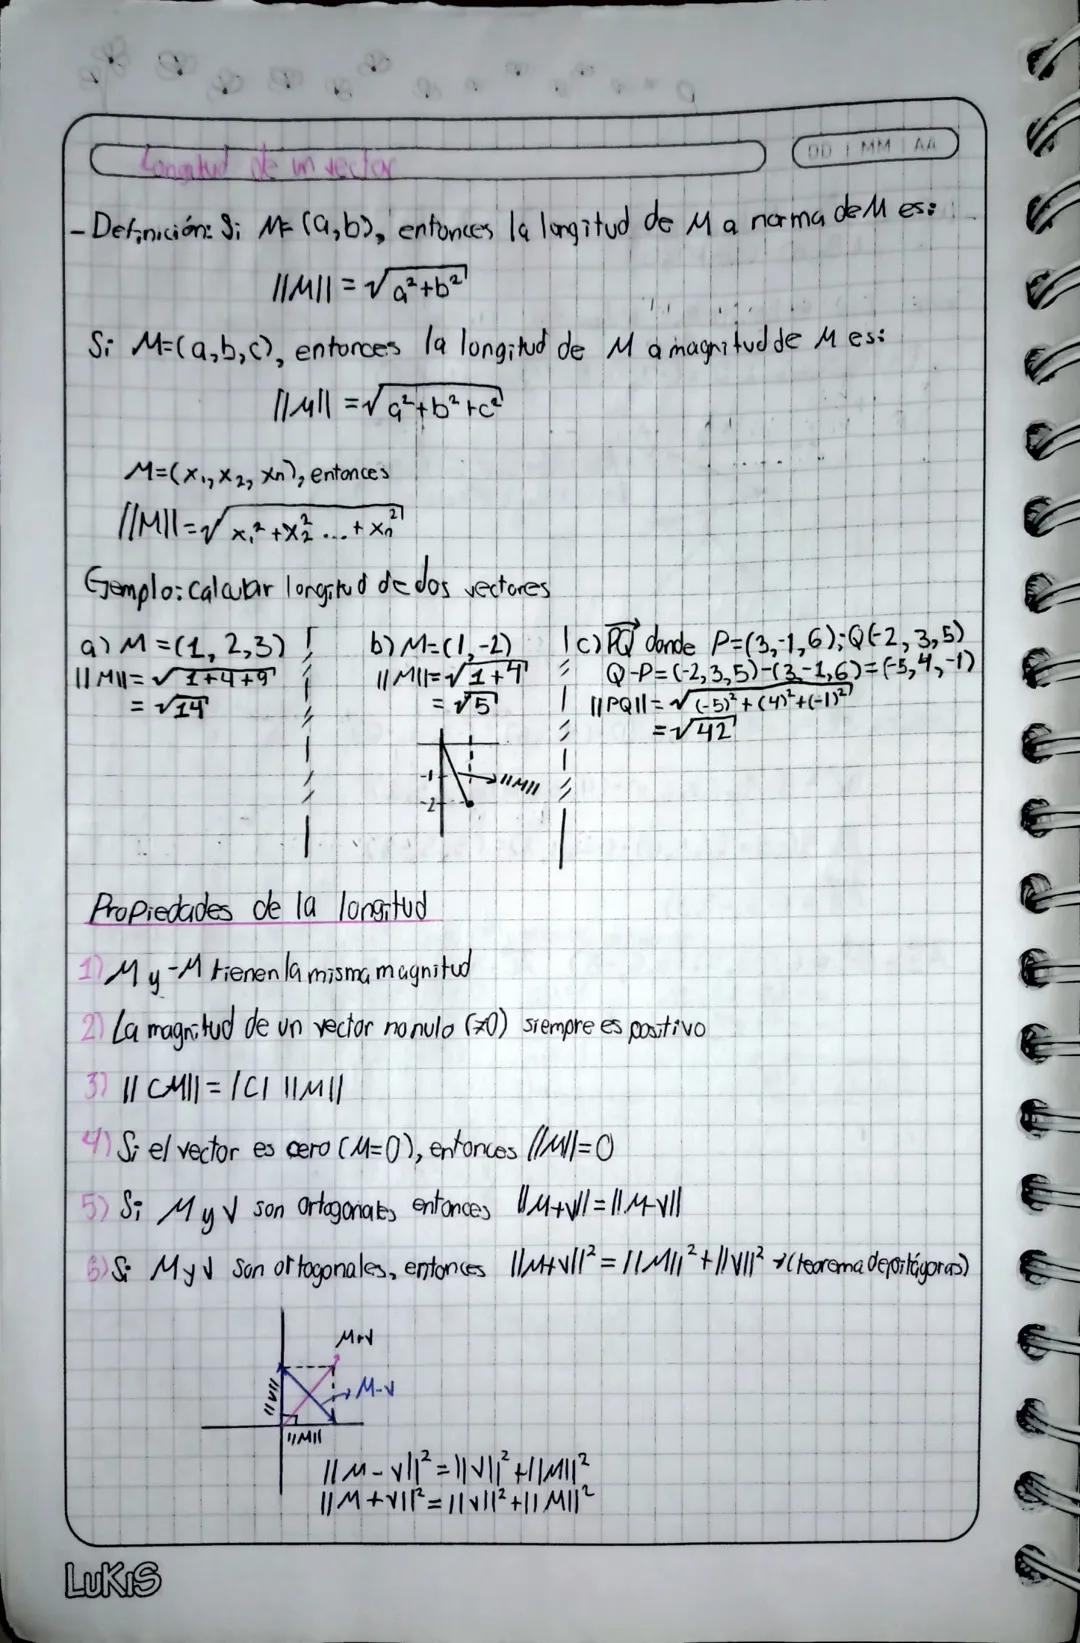 Longitud de un vector
DD | MM | AA
- Definición: Si M=(a,b), entonces la longitud de M a norma de M es:
||M|| = √a²+b²
Si M=(a,b,c), entonces la longitud de M a magnitud de M es:
||M|| = √a²+b²+c²
M=(x₁, x₂, xn), entonces
||M||=√x₁²+x₂² ...+xn²
Ejemplo: calcular longitud de dos vectores
a) M=(1, 2,3)
||M||=√1+4+9
=√14
b) M=(1,-2)
||M||=√1+4
=√5
-1
||M||
-2
c) PQ donde P=(3,-1,6); Q(-2,3,5)
Q-P=(-2,3,5)-(3,-1,6)=(-5,4,-1)
||PQ||=√(-5)²+(4)²+(-1)²
=√42
Propiedades de la longitud
1) M y -M tienen la misma magnitud
2) La magnitud de un vector no nulo (≠0) siempre es positivo
3) ||CM||=|C| ||M||
4) Si el vector es cero (M=0), entonces ||M||=0
5) Si M y V son ortogonales entonces ||M+V||=||M-V||
6) Si M y V son ortogonales, entonces ||M+V||²=||M||²+||V||² →(teorema de pitágoras)
M+V
M-V
||V||
||M||
||M-V||²=||V||²+||M||²
||M+V||²=||V||²+||M||²
LUKIS